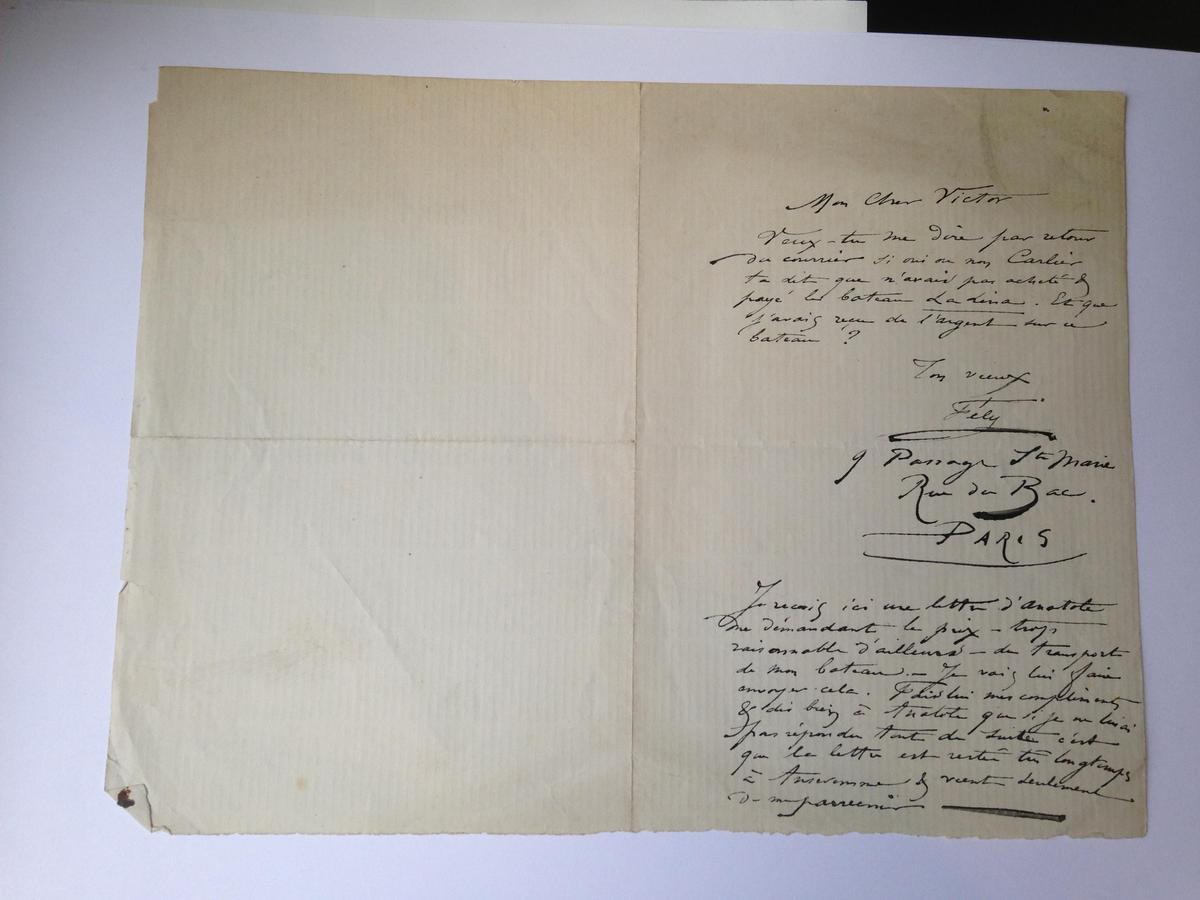 Mon Cher Victor
Veux-tu me dire par retour
du courrier si oui ou non Carlier
t'a dit que n'avais pas acheté &
payé le bateau Ladina. Et que
j'avais reçu de l'argent sur ce
bateau ?
Ton vieux
Fély
9 Passage Ste Marie
Rue du Bac.
PARIS
Je reçois ici une lettre d'Anatole
me démandant le prix - trop
raisonnable d'ailleurs - du transport
de mon bateau. - Je vais lui faire
envoyer cela. Fais lui mes compliments
& dis bien à Anatole que si je ne lui ai
pas répondu tout de suite c'est
que la lettre est restée très longtemps
à Anseremme & vient seulement
de me parvenir